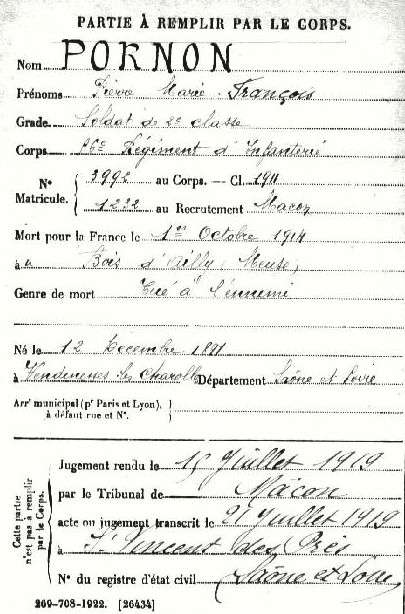 PARTIE À REMPLIR PAR LE CORPS.
Nom PORNON
Prénoms Pierre Marie François
Grade Soldat de 2e classe
Corps Régiment d'Infanterie
N° Matricule. { 3992 au Corps. — Cl. 1911
1232 au Recrutement Macon
Mort pour la France le 1er Octobre 1914
à u Bois d'Ailly Meuse
Genre de mort Tué à l'ennemi
Né le 12 Decembre 1891
à Vendenesse les Charolles Département Saône et Loire
Arrt municipal (pr Paris et Lyon),
à défaut rue et N°.
Cette partie n'est pas à remplir par le Corps.
Jugement rendu le Juillet 1919
par le Tribunal de Mâcon
acte ou jugement transcrit le 21 Juillet 1919
à St Vincent des Prés
N° du registre d'état civil Saône et Loire
269-708-1922. [26434]